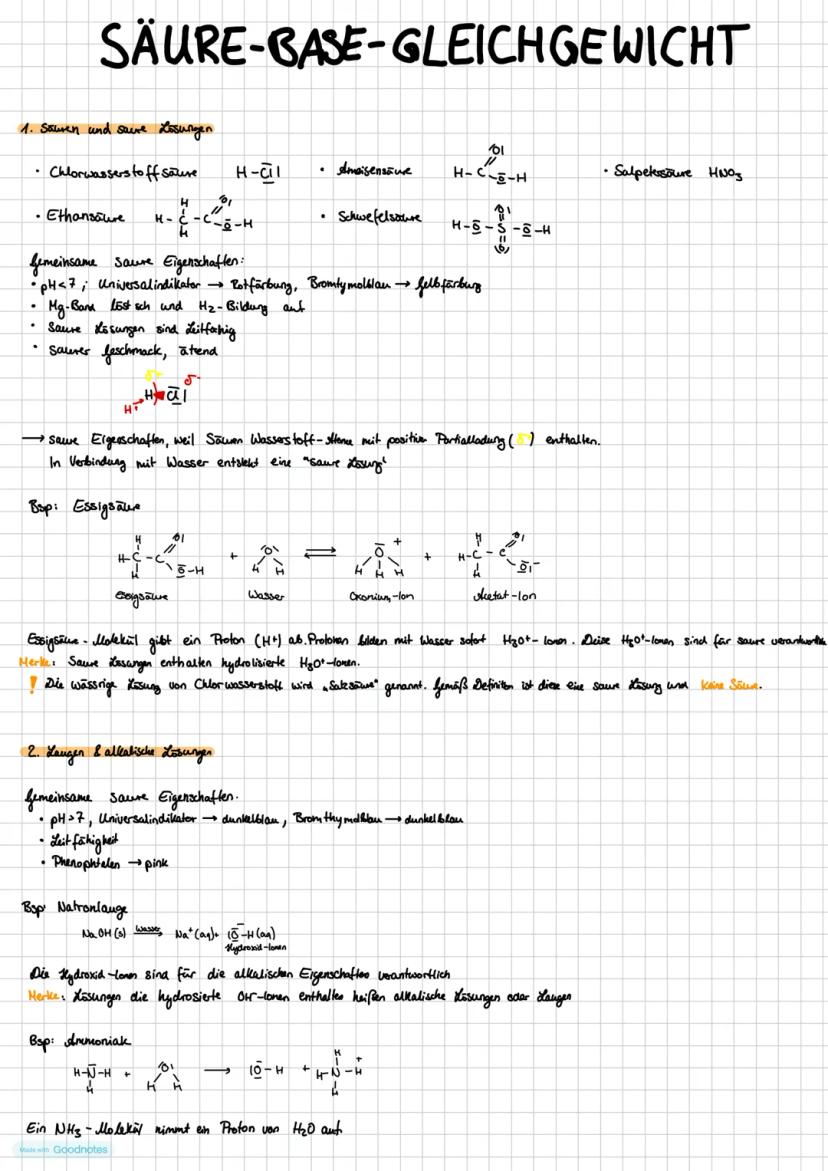 SÄURE-BASE-GLEICHGEWICHT
1. Säuren und saure Lösungen
· Chlorwasserstoffsäure H-Cl · Ameisensäure · Salpetersäure HNO₃
· Ethansäure · Schwefelsäure
Gemeinsame saure Eigenschaften:
· pH<7; Universalindikator → Rotfärbung, Bromtymolblau → Gelbfärbung
· Mg-Band löst sch und H₂-Bildung auf
· Saure Lösungen sind leitfähig
· saurer Geschmack, ätend
δ+ δ-
H Cl
H+
→ saure Eigenschaften, weil Säuren Wasserstoff-Atome mit positiver Partialladung (δ+) enthalten.
In Verbindung mit Wasser entsteht eine "saure Lösung"
Bsp: Essigsäure
Essigsäure Wasser Oxonium-Ion Acetat-Ion
Essigsäure-Molekül gibt ein Proton (H+) ab. Protonen bilden mit Wasser sofort H₃O+-Ionen. Deise H₃O+-Ionen sind für saure verantwortlich
Merke: Saure Lösungen enthalten hydrolisierte H₃O+-Ionen.
! Die wässrige Lösung von Chlorwasserstoff wird „Salzsäure" genannt. Gemäß Definition ist diese eine saure Lösung und keine Säure.
2. Laugen & alkalische Lösungen
Gemeinsame saure Eigenschaften.
· pH>7, Universalindikator → dunkelblau, Bromthymolblau → dunkelblau
· Leitfähigkeit
· Phenophtalen → pink
Bsp: Natronlauge
NaOH (s) Wasser → Na+ (aq) + |O-H (aq)
Hydroxid-Ionen
Die Hydroxid-Ionen sind für die alkalischen Eigenschaften verantwortlich
Merke: Lösungen die hydrosierte OH--Ionen enthalten heißen alkalische Lösungen oder Laugen
Bsp: Ammoniak
H-N-H + → |O-H + H-N-H
Ein NH₃-Molekül nimmt ein Proton von H₂O auf.
Made with Goodnotes